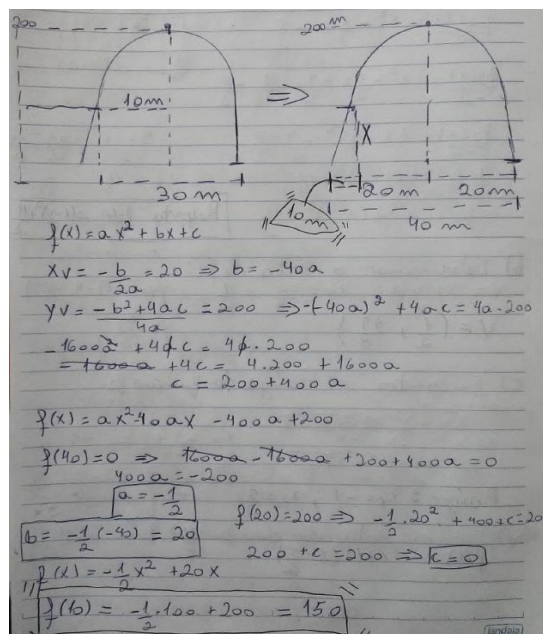 200
10m
30 m
⇒
200 m
X
20m
20m
10m
40 m
f(x) = ax² + bx + c
Xv = -b/2a = 20 ⇒ b = -40a
YV = -b² + 4ac/4a = 200 ⇒ -(-40a)² + 4ac = 4a.200
-1600a² + 4ac = 4a.200
= 1600a + 4c = 4.200 + 1600a
c = 200 + 400a
f(x) = ax² - 40ax - 400a + 200
f(40) = 0 ⇒ 1600a - 1600a + 200 + 400a = 0
400a = -200
a = -1/2
b = -1/2 (-40) = 20
f(20) = 200 ⇒ -1/2 . 20² + 400 + c = 20
200 + c = 200 ⇒ c = 0
f(x) = -1/2 x² + 20x
f(10) = -1/2 . 100 + 200 = 150
jandaia